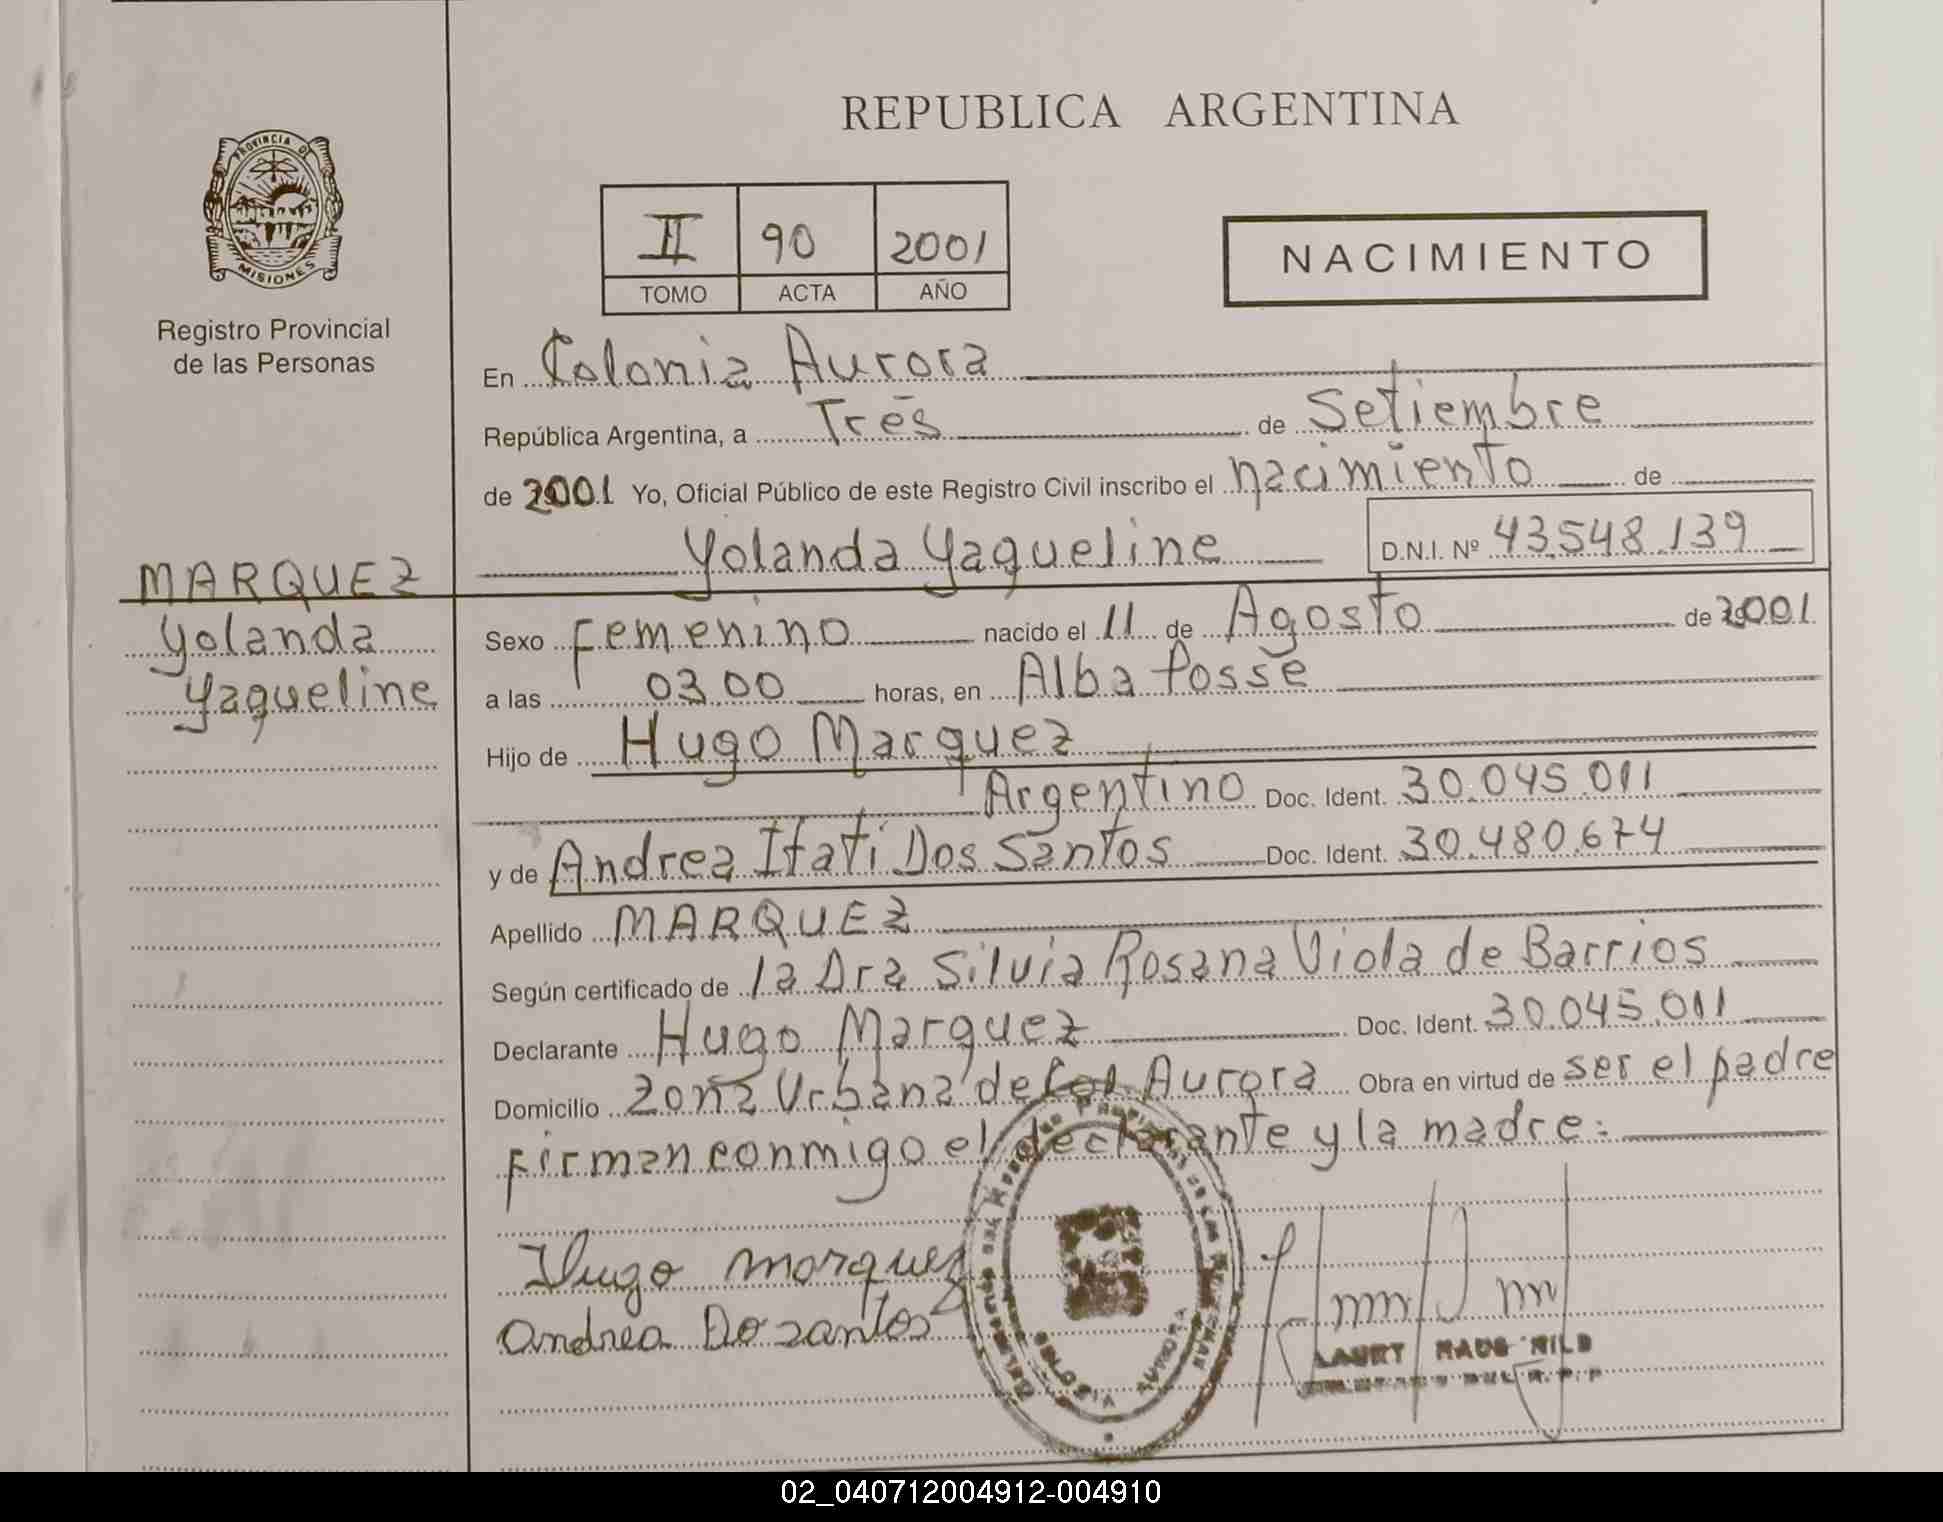 REPUBLICA ARGENTINA
PROVINCIA DE
MISIONES
Registro Provincial
de las Personas
II 90 2001
TOMO ACTA AÑO
NACIMIENTO
En Colonia Aurora
República Argentina, a Tres de Setiembre
de 2001 Yo, Oficial Público de este Registro Civil inscribo el nacimiento de
Yolanda Yaqueline D.N.I. Nº 43.548.139
MARQUEZ
Yolanda
Yaqueline
Sexo Femenino nacido el 11 de Agosto de 2001
a las 03,00 horas, en Alba Posse
Hijo de Hugo Marquez
Argentino Doc. Ident. 30.045.011
y de Andrea Itati Dos Santos Doc. Ident. 30.480.674
Apellido MARQUEZ
Según certificado de la Dra Silvia Rosana Viola de Barrios
Declarante Hugo Marquez Doc. Ident. 30.045.011
Domicilio Zona Urbana de Col Aurora Obra en virtud de ser el padre
Firman conmigo el declarante y la madre.
Hugo Marquez
Andrea Do santos
02_040712004912-004910